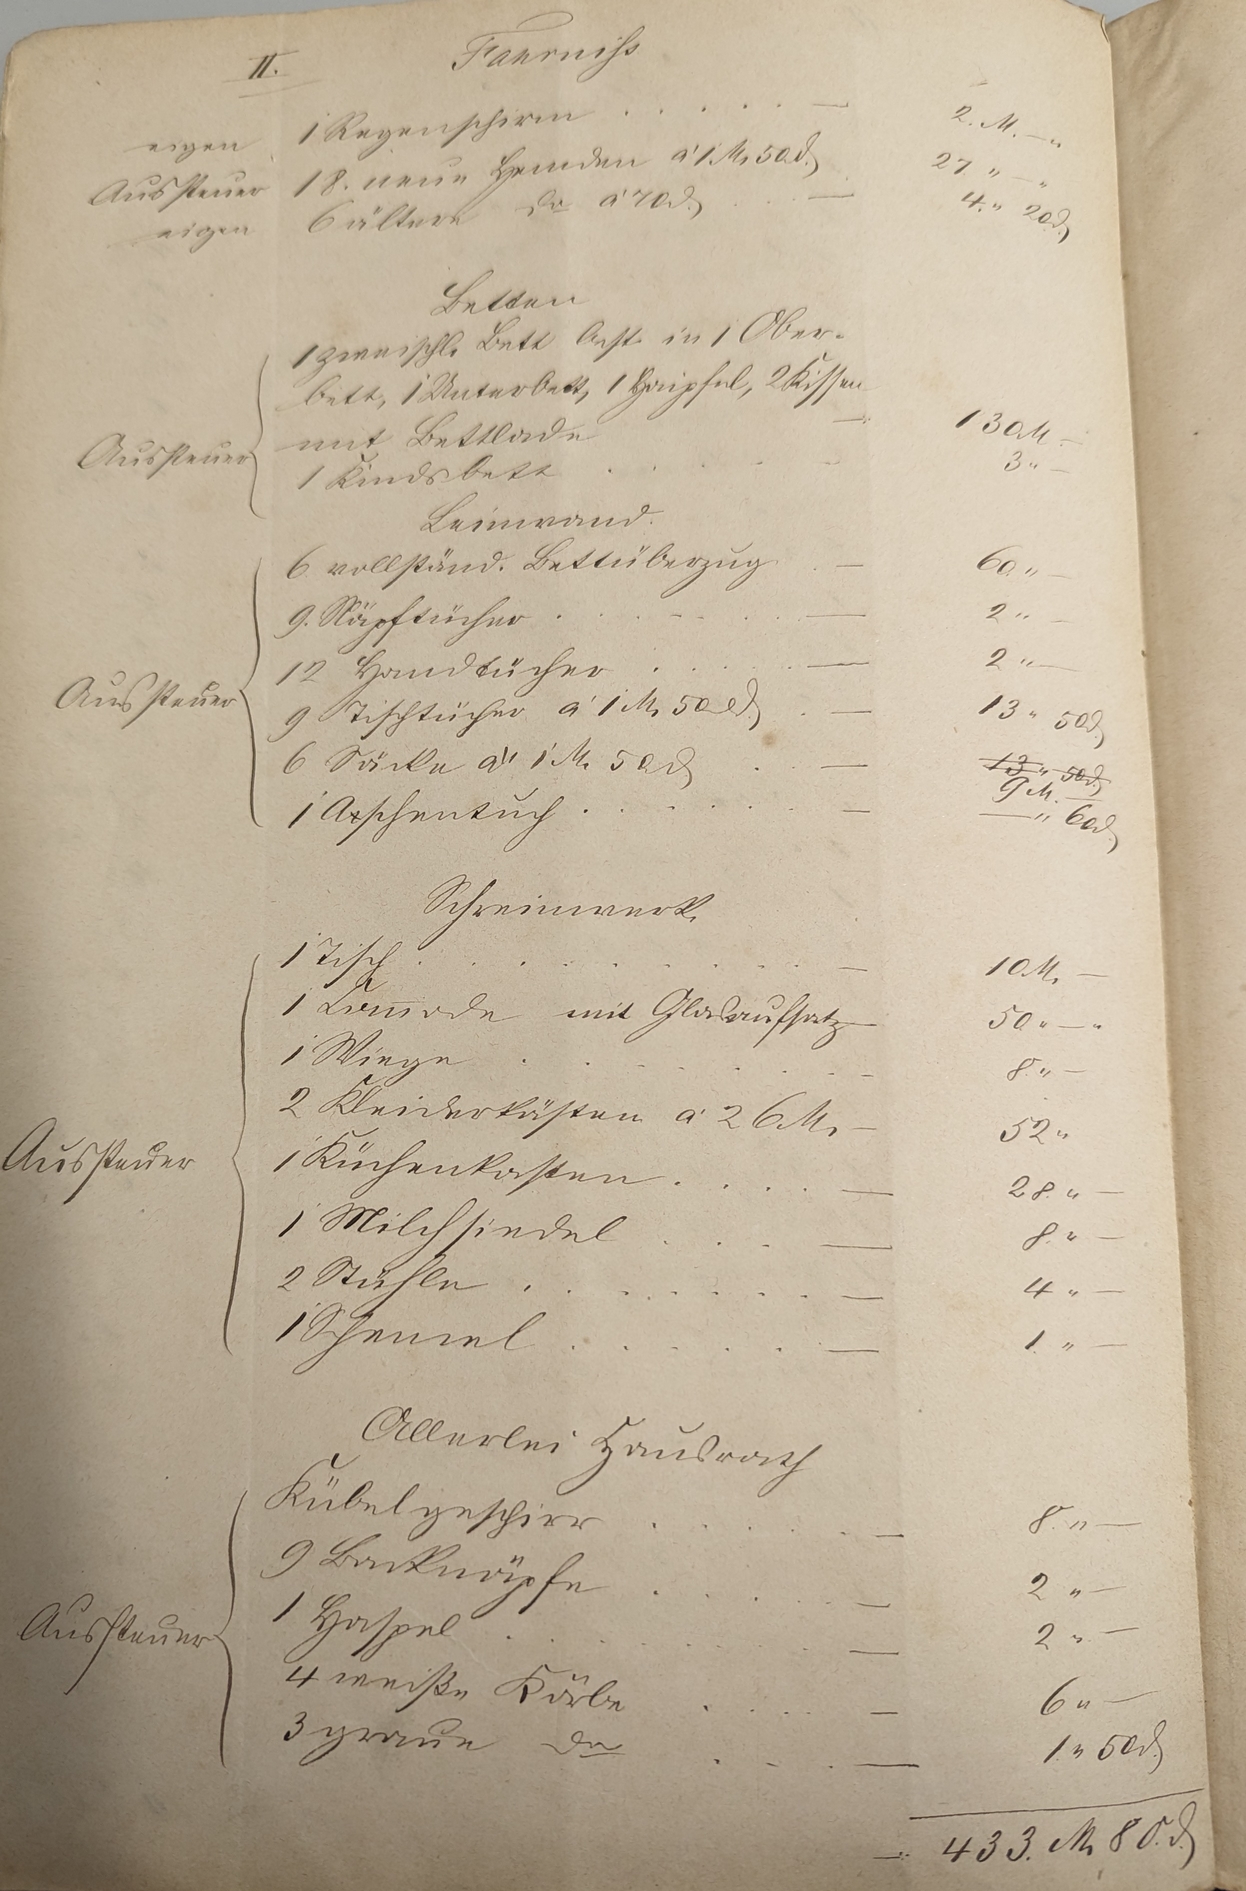 II. Fahrniß
eigen 1 Regenschirm . . . . . — 2. M. — "
Aussteuer 18. neue Hemden á 1 M. 50 d. 27 " — "
eigen 6 ältere do á 70 d. . . . — 4. " 20 d.
Betten
1 zweischl. Bett best. in 1 Ober-
bett, 1 Unterbett, 1 Haipfel, 2 Kissen
mit Bettlade — 130 M. —
Aussteuer
1 Kindsbett . . . . . 3 " —
Leinwand.
6 vollständ. Bettüberzug . — 60 " —
9. Näpftücher . . . . . . — 2 " —
12 Handtücher . . . . — 2 " —
Aussteuer
9 Tischtücher á 1 M. 50 d. . — 13 " 50 d.
6 Säcke á 1 M. 50 d . . — 13 " 50 d.
9 M. —
1 Aschentuch . . . . . . — — " 60 d.
Schreinwerk.
1 Tisch . . . . . . . . . — 10 M. —
1 Commode mit Glasaufsatz — 50 " — "
1 Wiege . . . . . . . — 8. " —
2 Kleiderkästen á 26 M. — 52 "
Aussteuer
1 Küchenkasten . . . . — 28. " —
1 Milchsiedel . . . — 8. " —
2 Stühle . . . . . . . — 4 " —
1 Schemel . . . . . . — 1. " —
Allerlei Hausrath
Kübelgeschirr . . . . . — 8. " —
9 Backnäpfe . . . . . — 2 " —
1 Haspel . . . . . . . — 2 " —
Aussteuer
4 weiße Körbe . . . . — 6 " —
3 graue do . . . — 1. " 50 d.
— 433. M. 80. d.